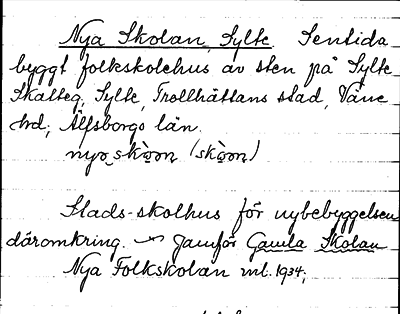 Nya Skolan, Sylte. Sentida
byggt folkskolehus av sten på Sylte
Skatteg. Sylte, Trollhättans stad, Väne
hd; Älfsborgs län.
nyo skòon (skòon)
Stads-skolhus för nybebyggelsen
däromkring. ~ Jämför Gamla Skolan
Nya Folkskolan ml. 1934;